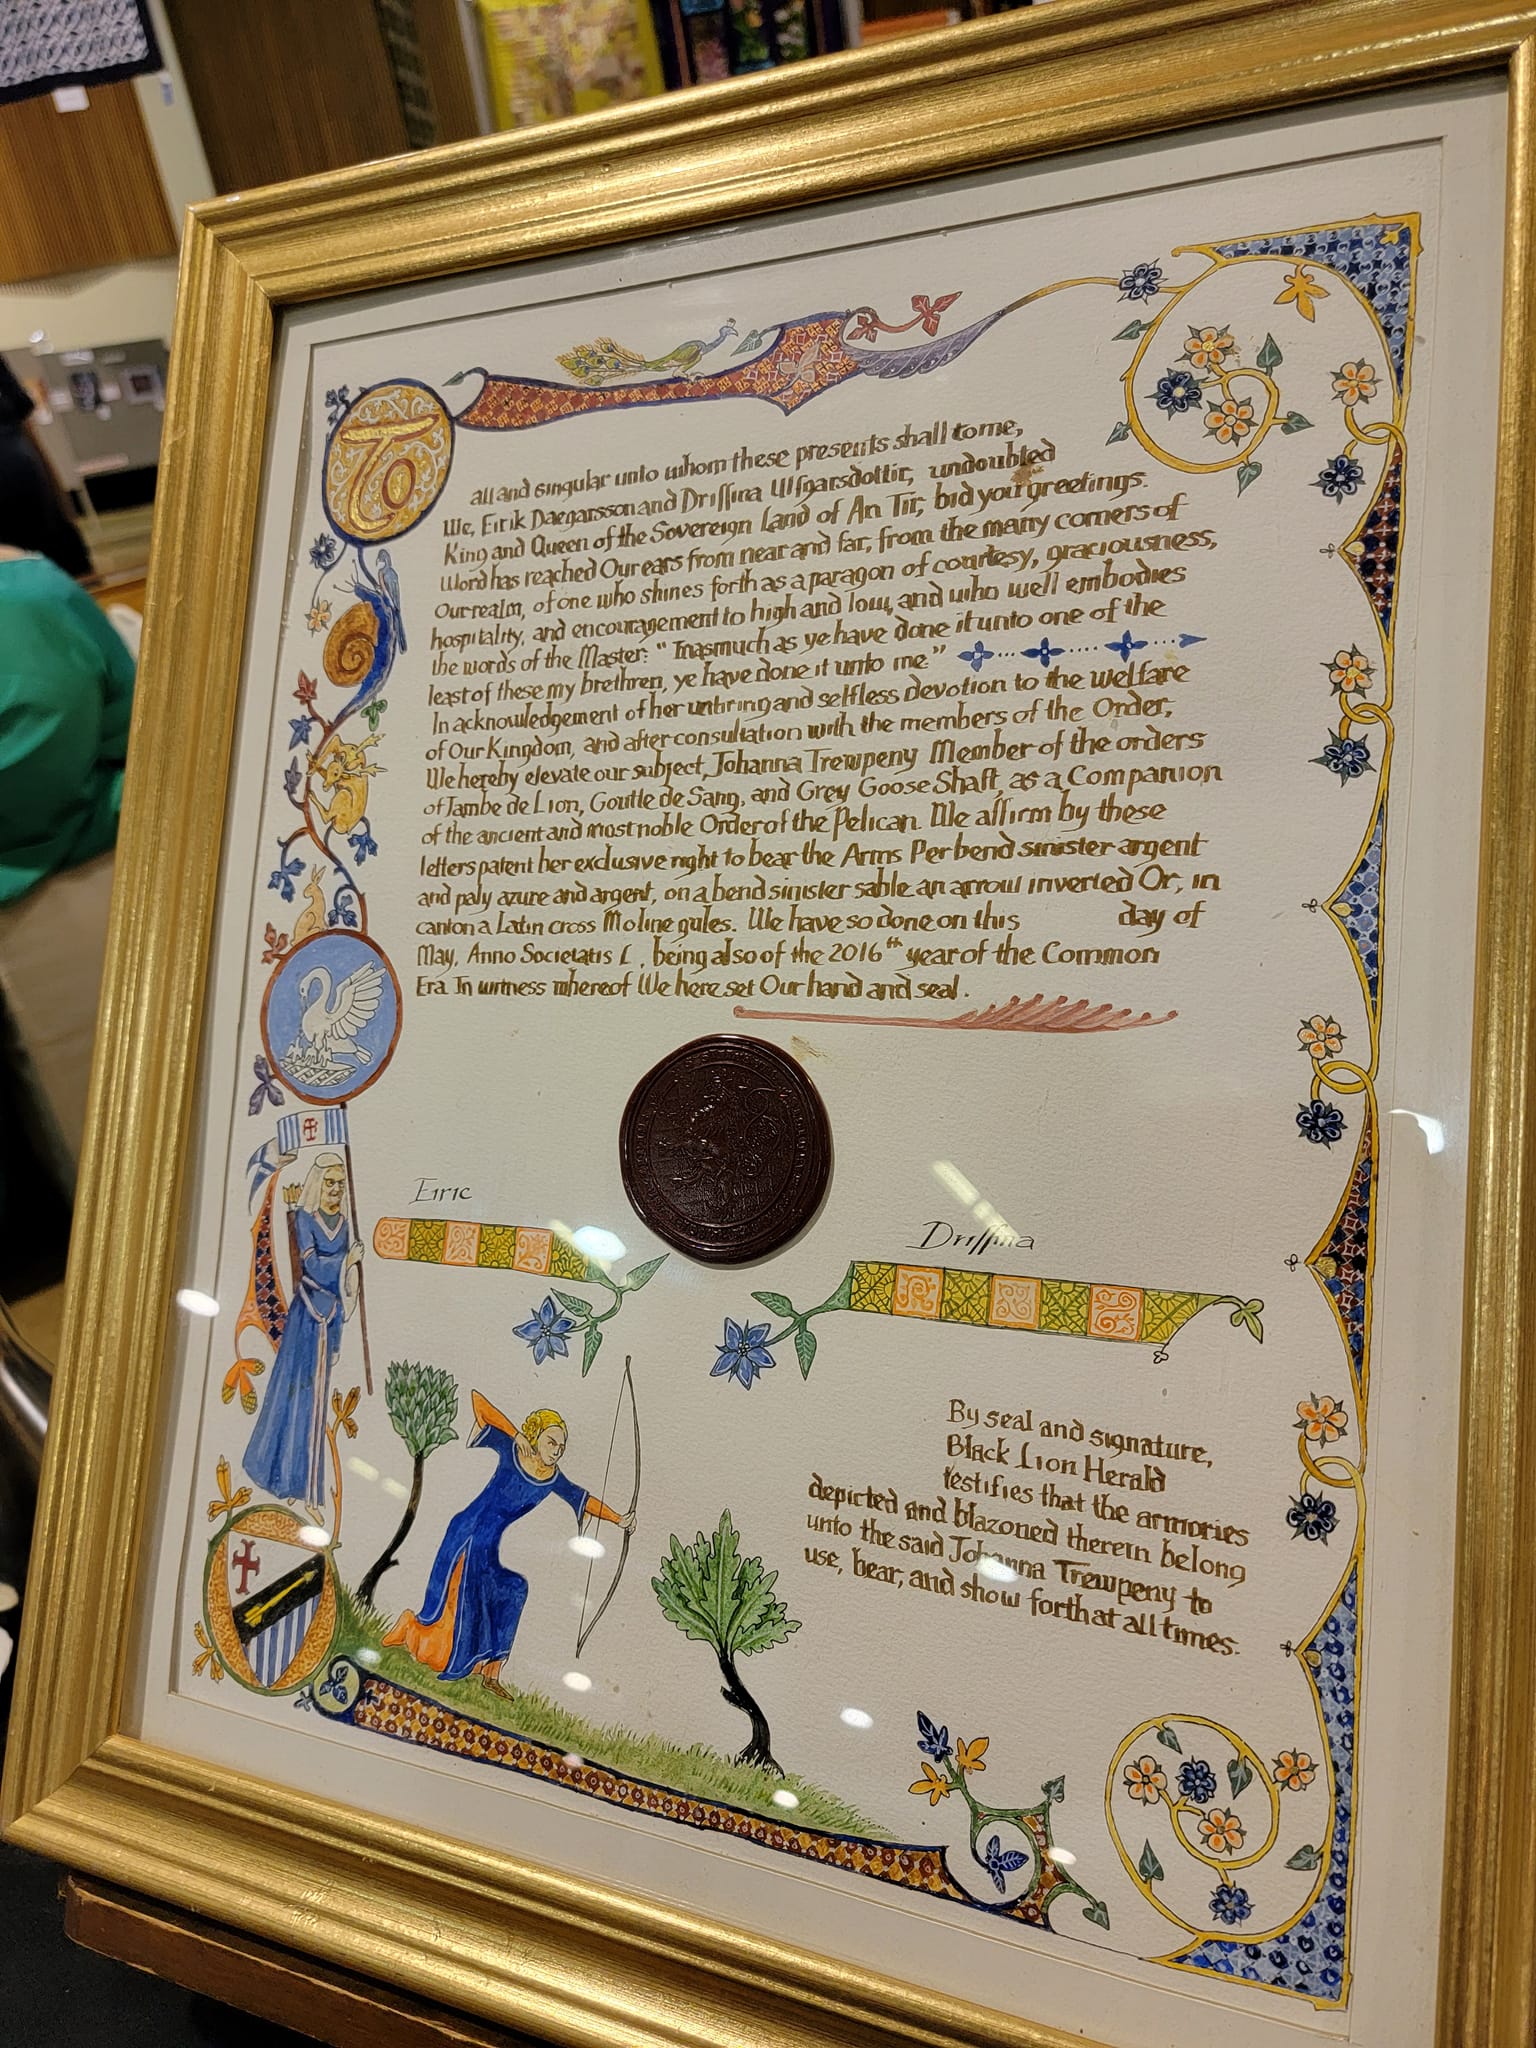 To
all and singular unto whom these presents shall come,
We, Eirik Daegarsson and Driffina Ulfgarsdottir, undoubted
King and Queen of the Sovereign Land of An Tir, bid you greetings.
Word has reached Our ears from near and far, from the many corners of
Our realm, of one who shines forth as a paragon of courtesy, graciousness,
hospitality, and encouragement to high and low, and who well embodies
the words of the Master: "Inasmuch as ye have done it unto one of the
least of these my brethren, ye have done it unto me."
In acknowledgement of her untiring and selfless devotion to the welfare
of Our Kingdom, and after consultation with the members of the Order,
We hereby elevate our subject, Johanna Trewpeny Member of the orders
of Jambe de Lion, Goutte de Sang, and Grey Goose Shaft, as a Companion
of the ancient and most noble Order of the Pelican. We affirm by these
letters patent her exclusive right to bear the Arms Per bend sinister argent
and paly azure and argent, on a bend sinister sable an arrow inverted Or, in
canton a Latin cross Moline gules. We have so done on this day of
May, Anno Societatis L, being also of the 2016th year of the Common
Era. In witness whereof We here set Our hand and seal.
Eiric
Driffina
By seal and signature,
Black Lion Herald
testifies that the armories
depicted and blazoned therein belong
unto the said Johanna Trewpeny to
use, bear, and show forth at all times.